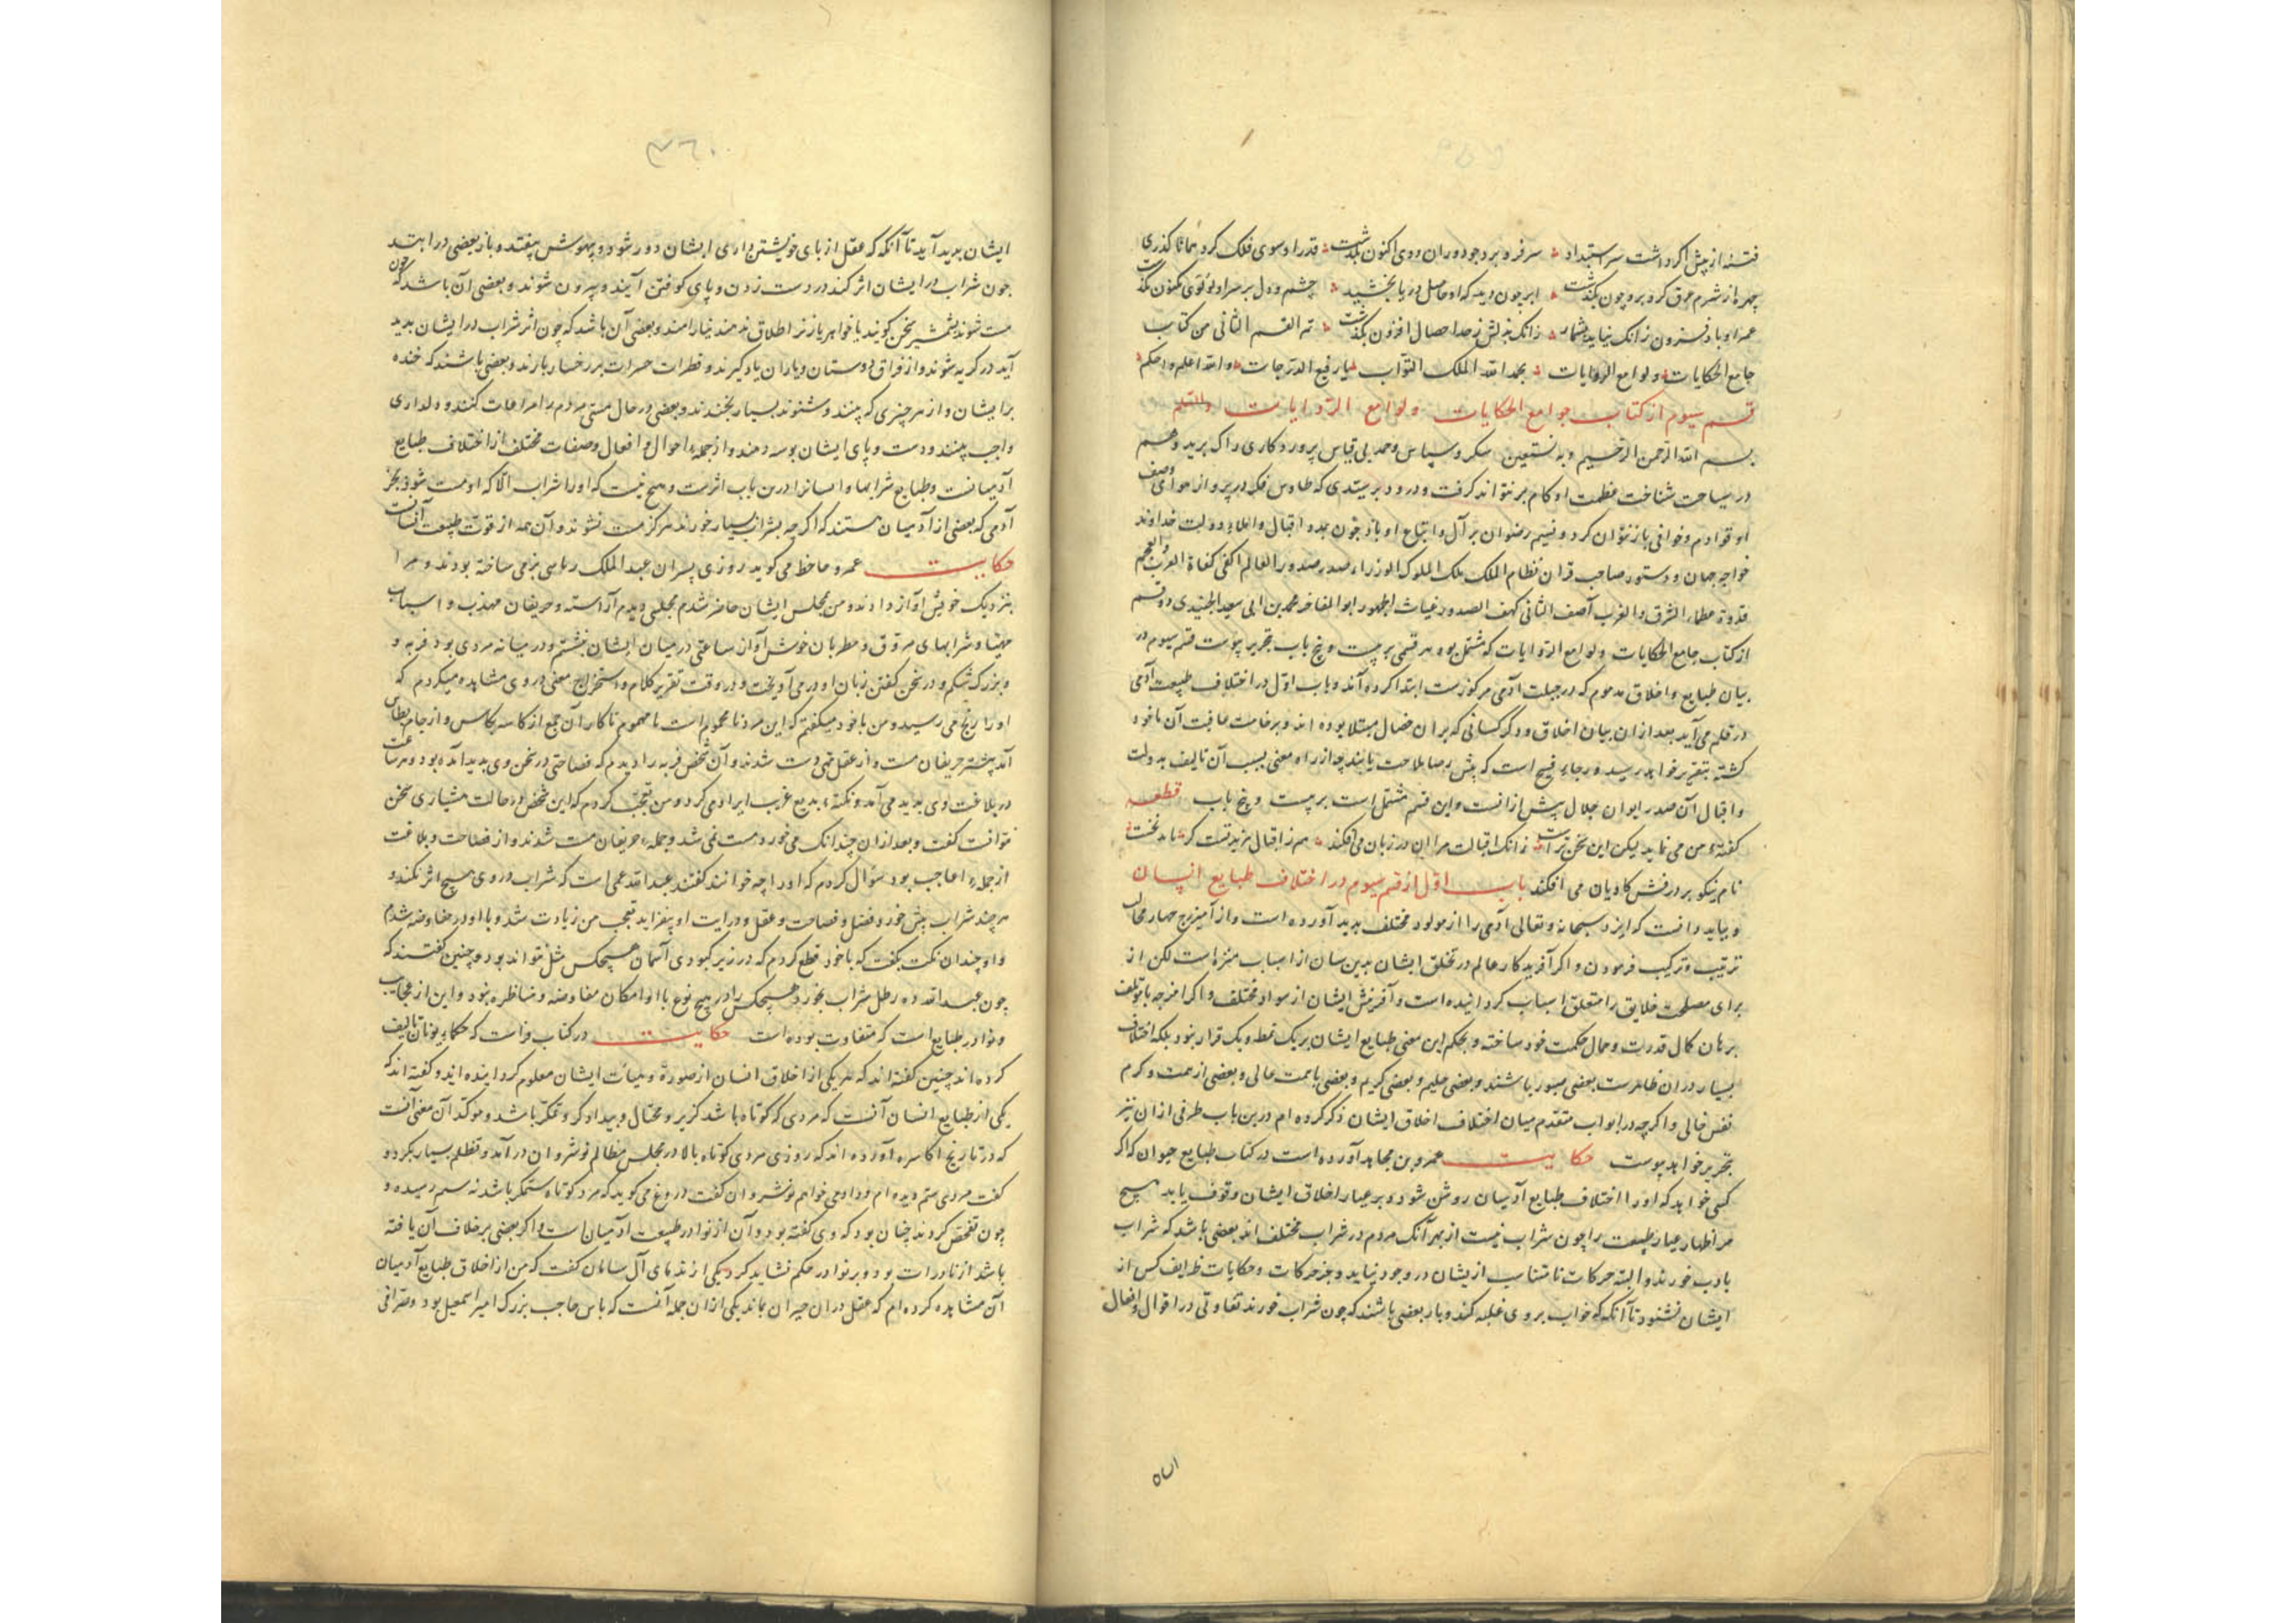 فتنه از پیش اگر داشت سر استبداد سر فرو برد چو دوران وی اکنون بگذشت قدر او سوی فلک کرد همانا گذری
چهره از شرم عرق کرد برو چون بگذشت ابر چون دید که او حاصل دریا بخشید چشم و دل بر سر او
عمر او باد فزون زانک نیاید بشمار زانک بذلش ز حد احصا افزون بگذشت تم القسم الثانی من کتاب
جامع الحکایات و لوامع الروایات بحمد الله الملک التواب یا رفیع الدرجات و الله اعلم و احکم
قسم سیوم از کتاب جوامع الحکایات و لوامع الروایات
بسم الله الرحمن الرحیم و به نستعین شکر و سپاس و حمد بی قیاس پروردگاری را که
در مساحت شناخت عظمت او کام بر نتواند گرفت و درود بر سیدی که طاوس فکر در پرواز هوای وصف
او قوادم و خوافی باز نتوان کرد و نسیم رضوان بر آل و اتباع او باد چون مدد اقبال و اعلاء دولت خداوند
خواجه جهان و دستور صاحب قران نظام الملک ملک الملوک الوزراء صدر صدور العالم اکفی کفاة العرب و العجم
قدوة عظماء الشرق و الغرب آصف الثانی کهف الصدور غیاث الجمهور ابو المفاخر محمد بن ابی سعد الجنیدی دو قسم
از کتاب جامع الحکایات و لوامع الروایات که مشتمل بود هر قسمی بر بیست و پنج باب تحریر پیوست قسم سیوم در
بیان طبایع و اخلاق مذموم که در جبلت آدمی مرکوزست ابتدا کرده آمد و باب اول در اختلاف طبیعت آدمی
در قلم می آید بعد از ان بیان اخلاق و ذکر کسانی که بر ان خصال مبتلا بوده اند و بر خامت عاقبت آن ماخوذ
گشته بتقریر خواهد رسید و رجاء فسیح است که پیش رضا ملاحت یابند چه از راه معنی بسبب آن تالیف بدولت
و اقبال آن صدر ایوان جلال پیش ازانست و این قسم مشتمل است بر بیست و پنج باب قطعه
گفته من می نماید لیکن این سخن تراست زانک اقبالت مرا این در زبان می افکند هم ز اقبال مزید تست که
نام نیکو بر درفش کاویان می افکند باب اول از قسم سیوم در اختلاف طبایع انسان
و بباید دانست که ایزد سبحانه و تعالی آدمی را از مولود مختلف پدید آورده است و از آمیزج چهار مخالف
ترتیب و ترکیب فرمودن و اگر آفریدکار عالم در تخلق ایشان بدین سان از اسباب منزهست لکن از
برای مصلحت خلایق را متعلق اسباب گردانیده است و آفرینش ایشان از مواد مختلف و اگر امزجه نامؤتلف
برهان کمال قدرت و جمال حکمت خود ساخته و بحکم این معنی طبایع ایشان بر یک نمط و یک قرار نبود بلکه اختلاف
بسیار در ان ظاهرست بعضی صبور باشند و بعضی حلیم و بعضی کریم و بعضی با همت عالی و بعضی از همت و کرم
نفس خالی و اگر چه در ابواب متقدم میان اختلاف اخلاق ایشان ذکر کرده ام درین باب طرفی از ان نیز
تحریر خواهد پیوست حکایت عمرو بن مجاهد آورده است در کتاب طبایع حیوان که اگر
کسی خواهد که او را اختلاف طبایع آدمیان روشن شود و بر عیار اخلاق ایشان وقوف یابد هیچ
مر اظهار عیار طبیعت را چون شراب نیست از بهر آنک مردم در شراب مختلف اند بعضی باشد که شراب
بادب خورند و البته حرکات نامتناسب ازیشان در وجود نیاید و جز حرکات و حکایات ظرایف کس از
ایشان نشنود تا آنکه که خواب بر وی غلبه کند و باز بعضی باشند که چون شراب خورند تفاوتی در اقوال و افعال
اسان
۳۶۰
ایشان پدید آید تا آنکه که عقل از پای خویشتن داری ایشان دور شود و بیهوش بیفتد و باز بعضی در ابتد
چون شراب در ایشان اثر کند در دست زدن و پای کوفتن آیند و بیرون شوند و بعضی آن باشد که چون
مست شوند بشمشیر سخن گویند یا خواهر یا زن را طلاق ندهند نیارامند و بعضی آن باشد که چون اثر شراب در ایشان پدید
آید در گریه شوند و از فراق دوستان و یاران یاد گیرند و قطرات حسرات بر رخسار بارند و بعضی باشند که خنده
بر ایشان و از هر چیزی که بینند و شنوند بسیار بخندند و بعضی در حال مستی مردم را مراعات کنند و دلداری
واجب بینند و دست و پای ایشان بوسه دهند و از جمله احوال و افعال و صفات مختلف از اختلاف طبایع
آدمیانست و طبایع شرابها و انسانرا درین باب اثرست و هیچ نیست که او را شراب الا که او مست شود بجز
آدمی که بعضی از آدمیان هستند که اگر چه بشراب بسیار خورند هرگز مست نشوند و آن همه از قوت طبیعت انسانست
حکایت عمرو جاحظ می گوید روزی پسران عبد الملک بزمی ساخته بودند و مرا
بنزدیک خویش آواز دادند و من بمجلس ایشان حاضر شدم مجلسی دیدم آراسته و حریفان مهذب و اسباب
مهیا و شرابهای مروق و مطربان خوش آواز ساعتی در میان ایشان بنشستم و در میانه مردی بود فربه و
و بزرگ شکم و در سخن گفتن زبان او در می آویخت و در وقت تقریر کلام و استخراج معنی در وی مشاهده میکردم که
او را رنج می رسید و من با خود میگفتم که این مرد نا محموم است نا مهموم تا کار آن جمع از کاسه بکاس و از جام بطاس
آمد بیشتر حریفان مست و از عقل تهی دست شدند و آن شخص فربه را دیدم که فصاحتی در سخن وی پدید آمده بود و هر ساعت
در بلاغت وی پدید می آمد و نکتهء بدیع غریب ایراد می کرد و من تعجب کردم که این شخص در حالت هشیاری سخن
نتوانست گفت و بعد از ان چندانک می خورد مست نمی شد و جملهء حریفان مست شدند و از فصاحت و بلاغت
از جملهء اعاجب بود سؤال کردم که او را چه خوانند گفتند عبد الله عمی است که شراب در وی هیچ اثر نکند و
هر چند شراب بیش خورد فضل و فصاحت و عقل و درایت او بیفزاید تعجب من زیادت شد و با او در مفاوضه شدم
و او چندان نکت بگفت که با خود قطع کردم که در زیر کبودی آسمان هیچکس مثل نتواند بود و چنین گفتند که
چون عبد الله ده رطل شراب بخورد هیچکس را در هیچ نوع با او امکان مفاوضه و مناظره نبود و این از عجایب
و نوادر طبایع است که متفاوت بوده است حکایت در کتاب فراست که حکماء یونان تالیف
کرده اند چنین گفته اند که هر یکی از اخلاق انسان از صورة و هیات ایشان معلوم گردانیده اند و گفته اند که
یکی از طبایع انسان آنست که مردی که کوتاه باشد گزبر و محتال و بیدادگر و متکبر باشد و موکد آن معنی آنست
که در تاریخ اکاسره آورده اند که روزی مردی کوتاه بالا در مجلس مظالم نوشروان در آمد و تظلم بسیار بکرد و
گفت مردی ستم دیده ام و داد می خواهم نوشروان گفت دروغ می گوید که مرد کوتاه ستمگر باشد نه ستم رسیده و
چون تفحص کردند چنان بود که وی گفته بود و آن از نوادر طبیعت آدمیان است و اگر بعضی بر خلاف آن یافته
باشد از نادرات بود و بر نوادر حکم نشاید کرد یکی از ندمای آل سامان گفت که من از اخلاق طبایع آدمیان
آن مشاهده کرده ام که عقل در ان حیران بماند یکی ازان جمله آنست که باس حاجب بزرگ امیر اسمعیل بود و صرافی